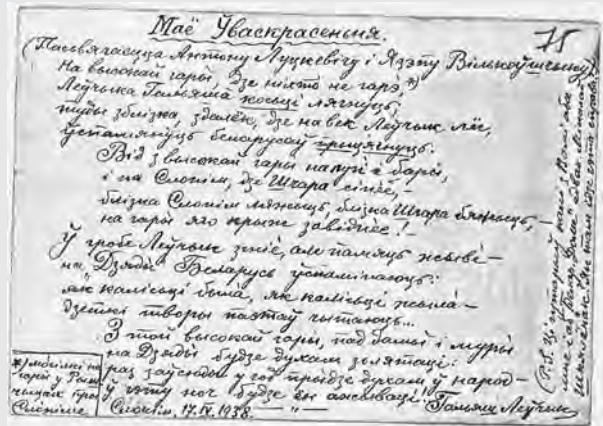 Маё Ўваскрасеньня.
75
(Пасьвячаецца Антону Луцкевічу і Язэпу Вількоўшчыку)
На высокай гары, дзе ніхто не гарэ,*)
Леўчыка Гальяша косьці лягнуць,
туды зблізка, здалёк, дзе на век Леўчык лёг,
ўспамянуць беларусаў прыцягнуць.
Від з высокай гары на лугі і бары,
і на Слонім, дзе Шчара сінее,
блізка Слонім ляжыць, блізка Шчара бяжыць, —
на гары яго крыж завіднее! —
Ў гробе Леўчык зніе, але памяць жыве —
на „Дзяды" Беларусь ўспамінаюць:
як калісьці была, як калісьці жыла —
дзеткі творы паэтаў чытаюць...
З той высокай гары, над дамы і муры
на Дзяды будзе духам злятаці:
раз заўсёды ў год прыдзе духам ў народ —
ў гэту ноч будзе ён ажываці!
Слонім, 17.IV.1938. — „ —
Гальяш Леўчык
*) могілкі на
гары у
пры
Слоніме
(P.S. Ці
мне і